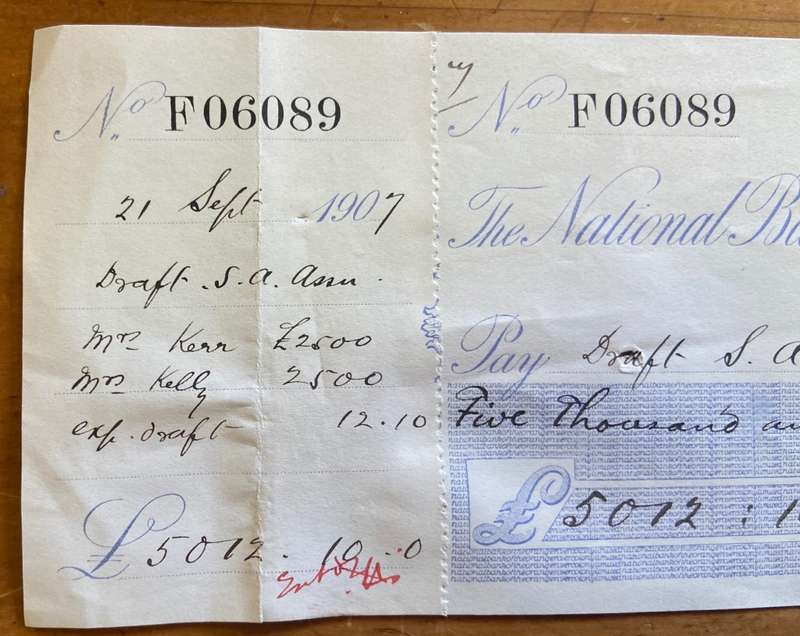 No F06089
21 Sept 1907
Draft S. A. Assn.
Mrs Kerr £2500
Mrs Kelly 2500
exp. draft 12.10
£ 5012. 10. 0
No F06089
The National Ba
Pay Draft S. A
Five Thousand an
£ 5012 : 1